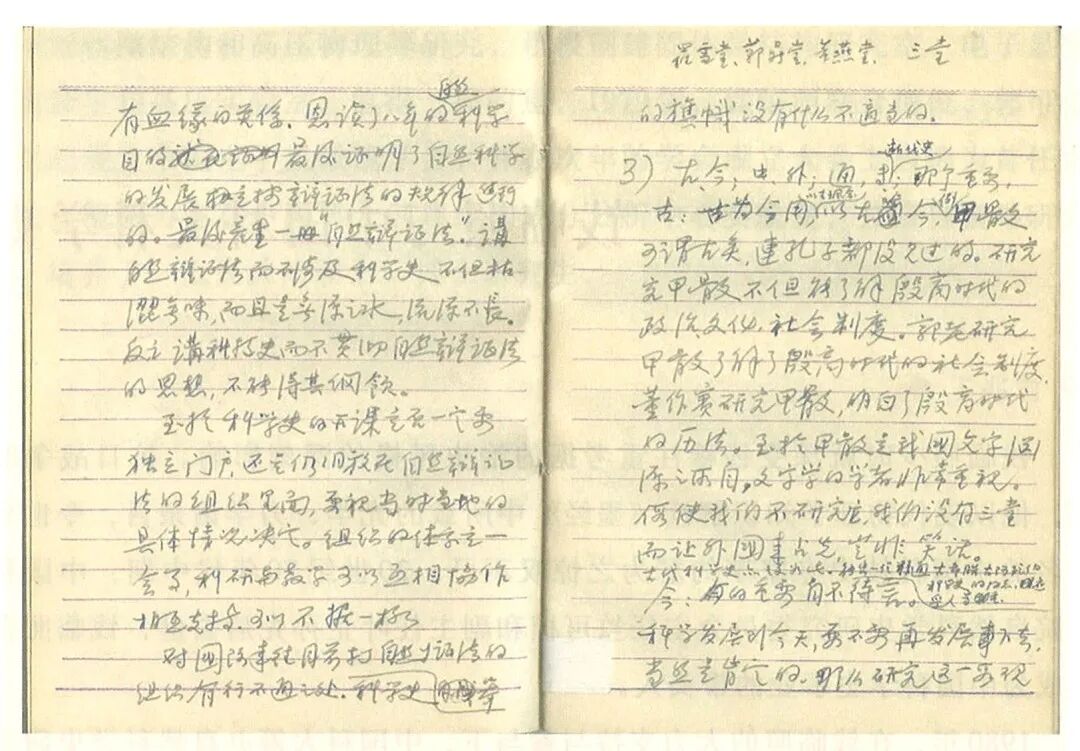 自然
有血缘的关系。恩读了八年的科学
目的 最后证明了自然科学
的发展 按辩证法的规律进行
的。最后产生一册"自然辩证法"。讲
自然辩证法而不涉及科学史 不但枯
涩无味,而且是无源之水,流源不长。
反之讲科技史而不贯彻自然辩证法
的思想,不能得其纲领。
至于科学史的开课 一个要
独立门户还是仍旧放在自然辩证
法的组织里面,要视当时当地的
具体情况决定。组织的体系
科研与教学可以互相协作
相互支持,可以不拘一格
对国际事往 自然辩证法的
组织有行不通之处。科学史
罗雪堂、郭鼎堂、董彦堂、三堂
的旗帜没有什么不适当的。
断代史
3)古、今;中、外;通, 重要,
古:古为今用 以古 今,甲骨
可谓古矣,连孔子都没见过的。研究
究甲骨不但能了解殷商时代的
政治文化、社会制度。郭老研究
甲骨了解了殷商时代的社会制度,
董作宾研究甲骨,明白了殷商时代
的历法。至于甲骨是我国文字
源之所自,文字学的学者非常重视。
何使我们不研究 我们没有三堂
而让外国 占先,岂非笑话。
古代科学史
今:有的重要自不待言。
科学发展到今天,要不要再发展
当然是肯定的。那么研究这一客观